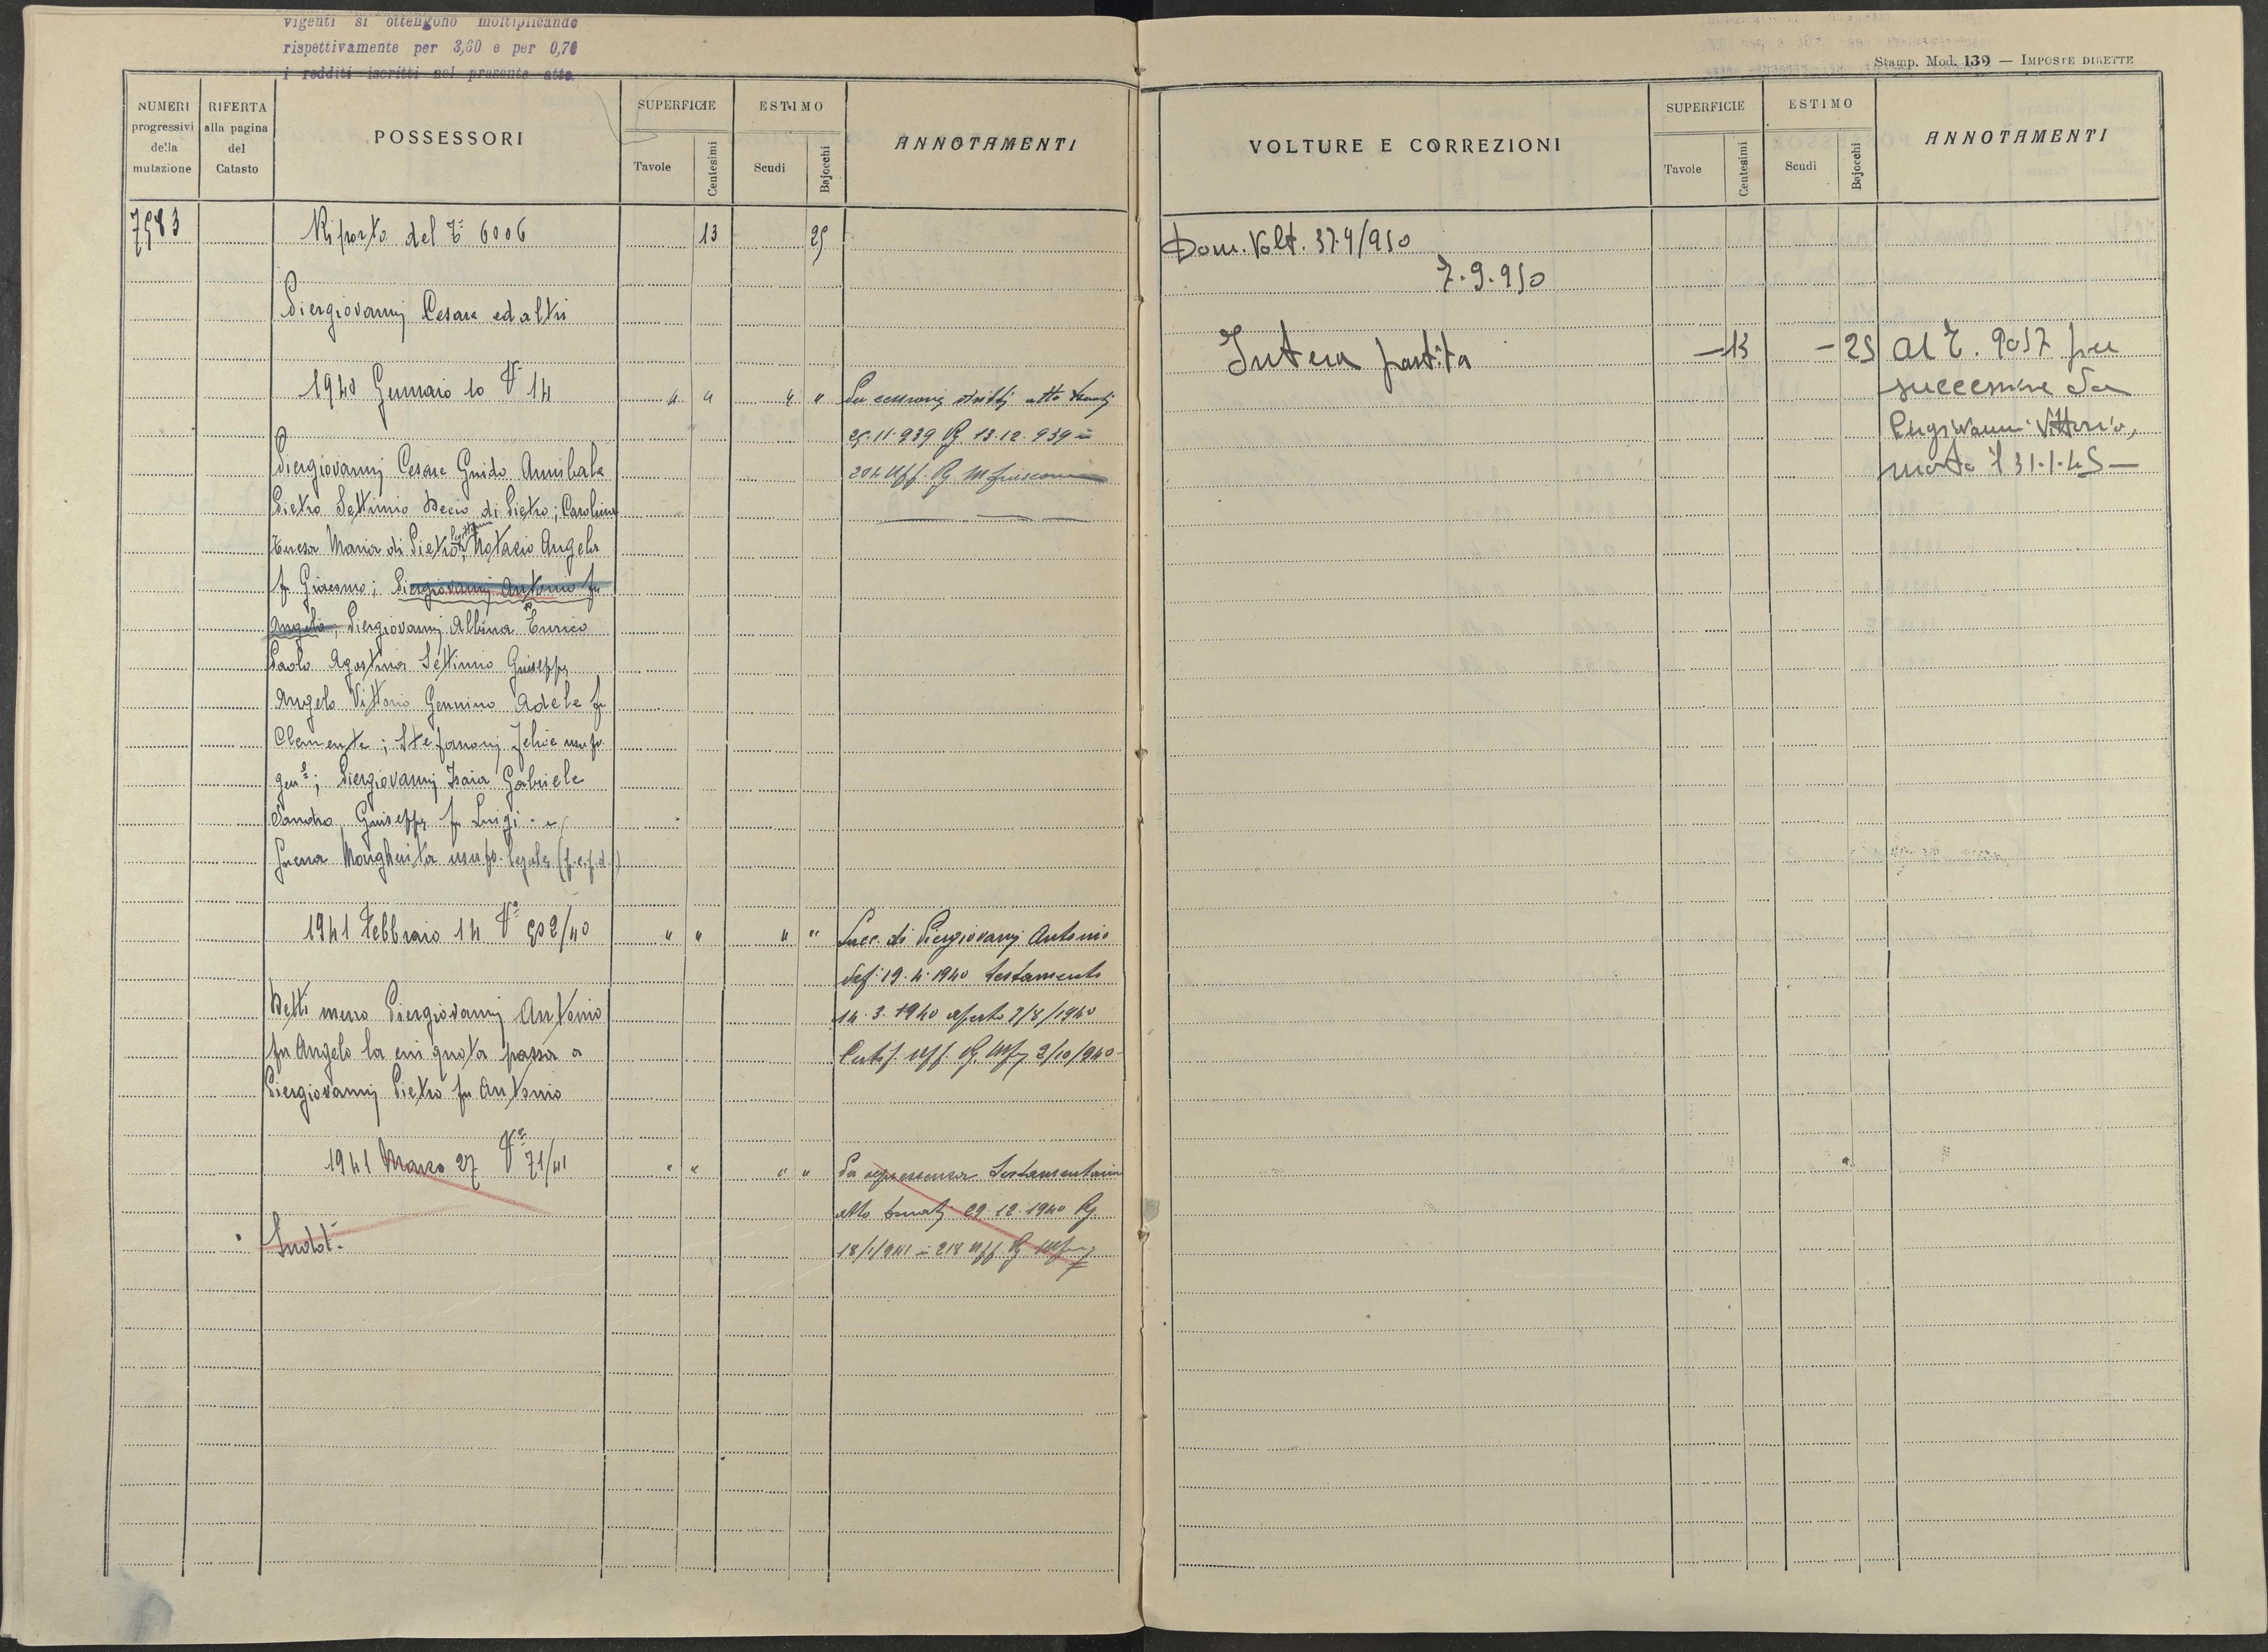 vigenti si ottengono moltiplicando
rispettivamente per 3,60 e per 0,70
i redditi iscritti nel presente atto.
NUMERI progressivi della mutazione
RIFERTA alla pagina del Catasto
POSSESSORI
SUPERFICIE
Tavole
Centesimi
ESTIMO
Scudi
Bajocchi
ANNOTAMENTI
7583 Riporto del T.º 6006 13 25
Piergiovanni Cesare ed altri
1940 Gennaio 10 Vª 14 " " " "
Piergiovanni Cesare Guido Annibale
Pietro Settimio Decio di Pietro; Carolina
Teresa Maria di Pietro; Notazio Angela
fu Giacomo; Piergiovanni Antonio fu
Angelo, Piergiovanni Albina Enrico
Paolo Agostina Settimio Giuseppe
Angelo Vittorio Gennino Adele fu
Clemente; Stefanoni Felice usufr.
gen.e; Piergiovanni Isaia Gabriele
Sandro, Giuseppe fu Luigi
Guerra Margherita usufr. legale
Per cessione diritti atto
25.11.939 Rg 13.12.939 n
204 Uff. Rg
1941 Febbraio 14 Vª 502/40 " " " "
Detti meno Piergiovanni Antonio
fu Angelo la cui quota passa a
Piergiovanni Pietro fu Antonio
Succ. di Piergiovanni Antonio
def. 19.4.1940 testamento
14.3.1940 aperto 2/8/1940
Certif. Uff. Rg. 2/10/940
1941 Marzo 27 Vª 71/41 " " " "
Suddt.
Per testamentaria
atto 29.12.1940 Rg.
18/1/941 n 218 Uff. Rg
Stamp. Mod. 139 — IMPOSTE DIRETTE
VOLTURE E CORREZIONI
SUPERFICIE
Tavole
Centesimi
ESTIMO
Scudi
Bajocchi
ANNOTAMENTI
Dom. Volt. 374/950
7.9.950
Intera partita —13 —25 al T. 9057 per
successione da
Piergiovanni Vittorio,
morto il 31.1.45—